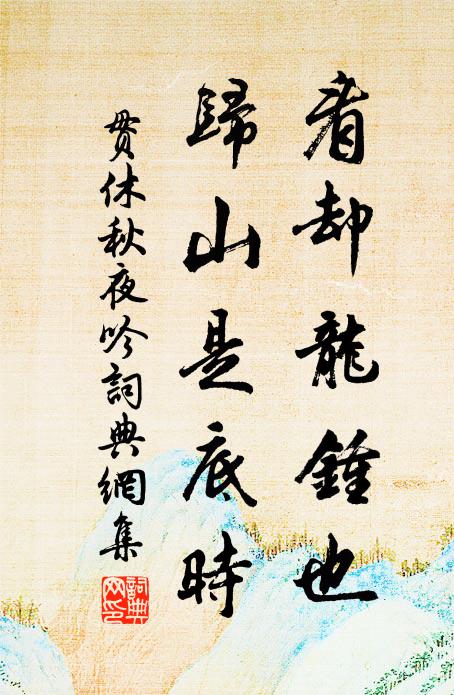 看却龍鍾也
歸山是底時
貫休秋夜吟詞典網集
詞典
网印